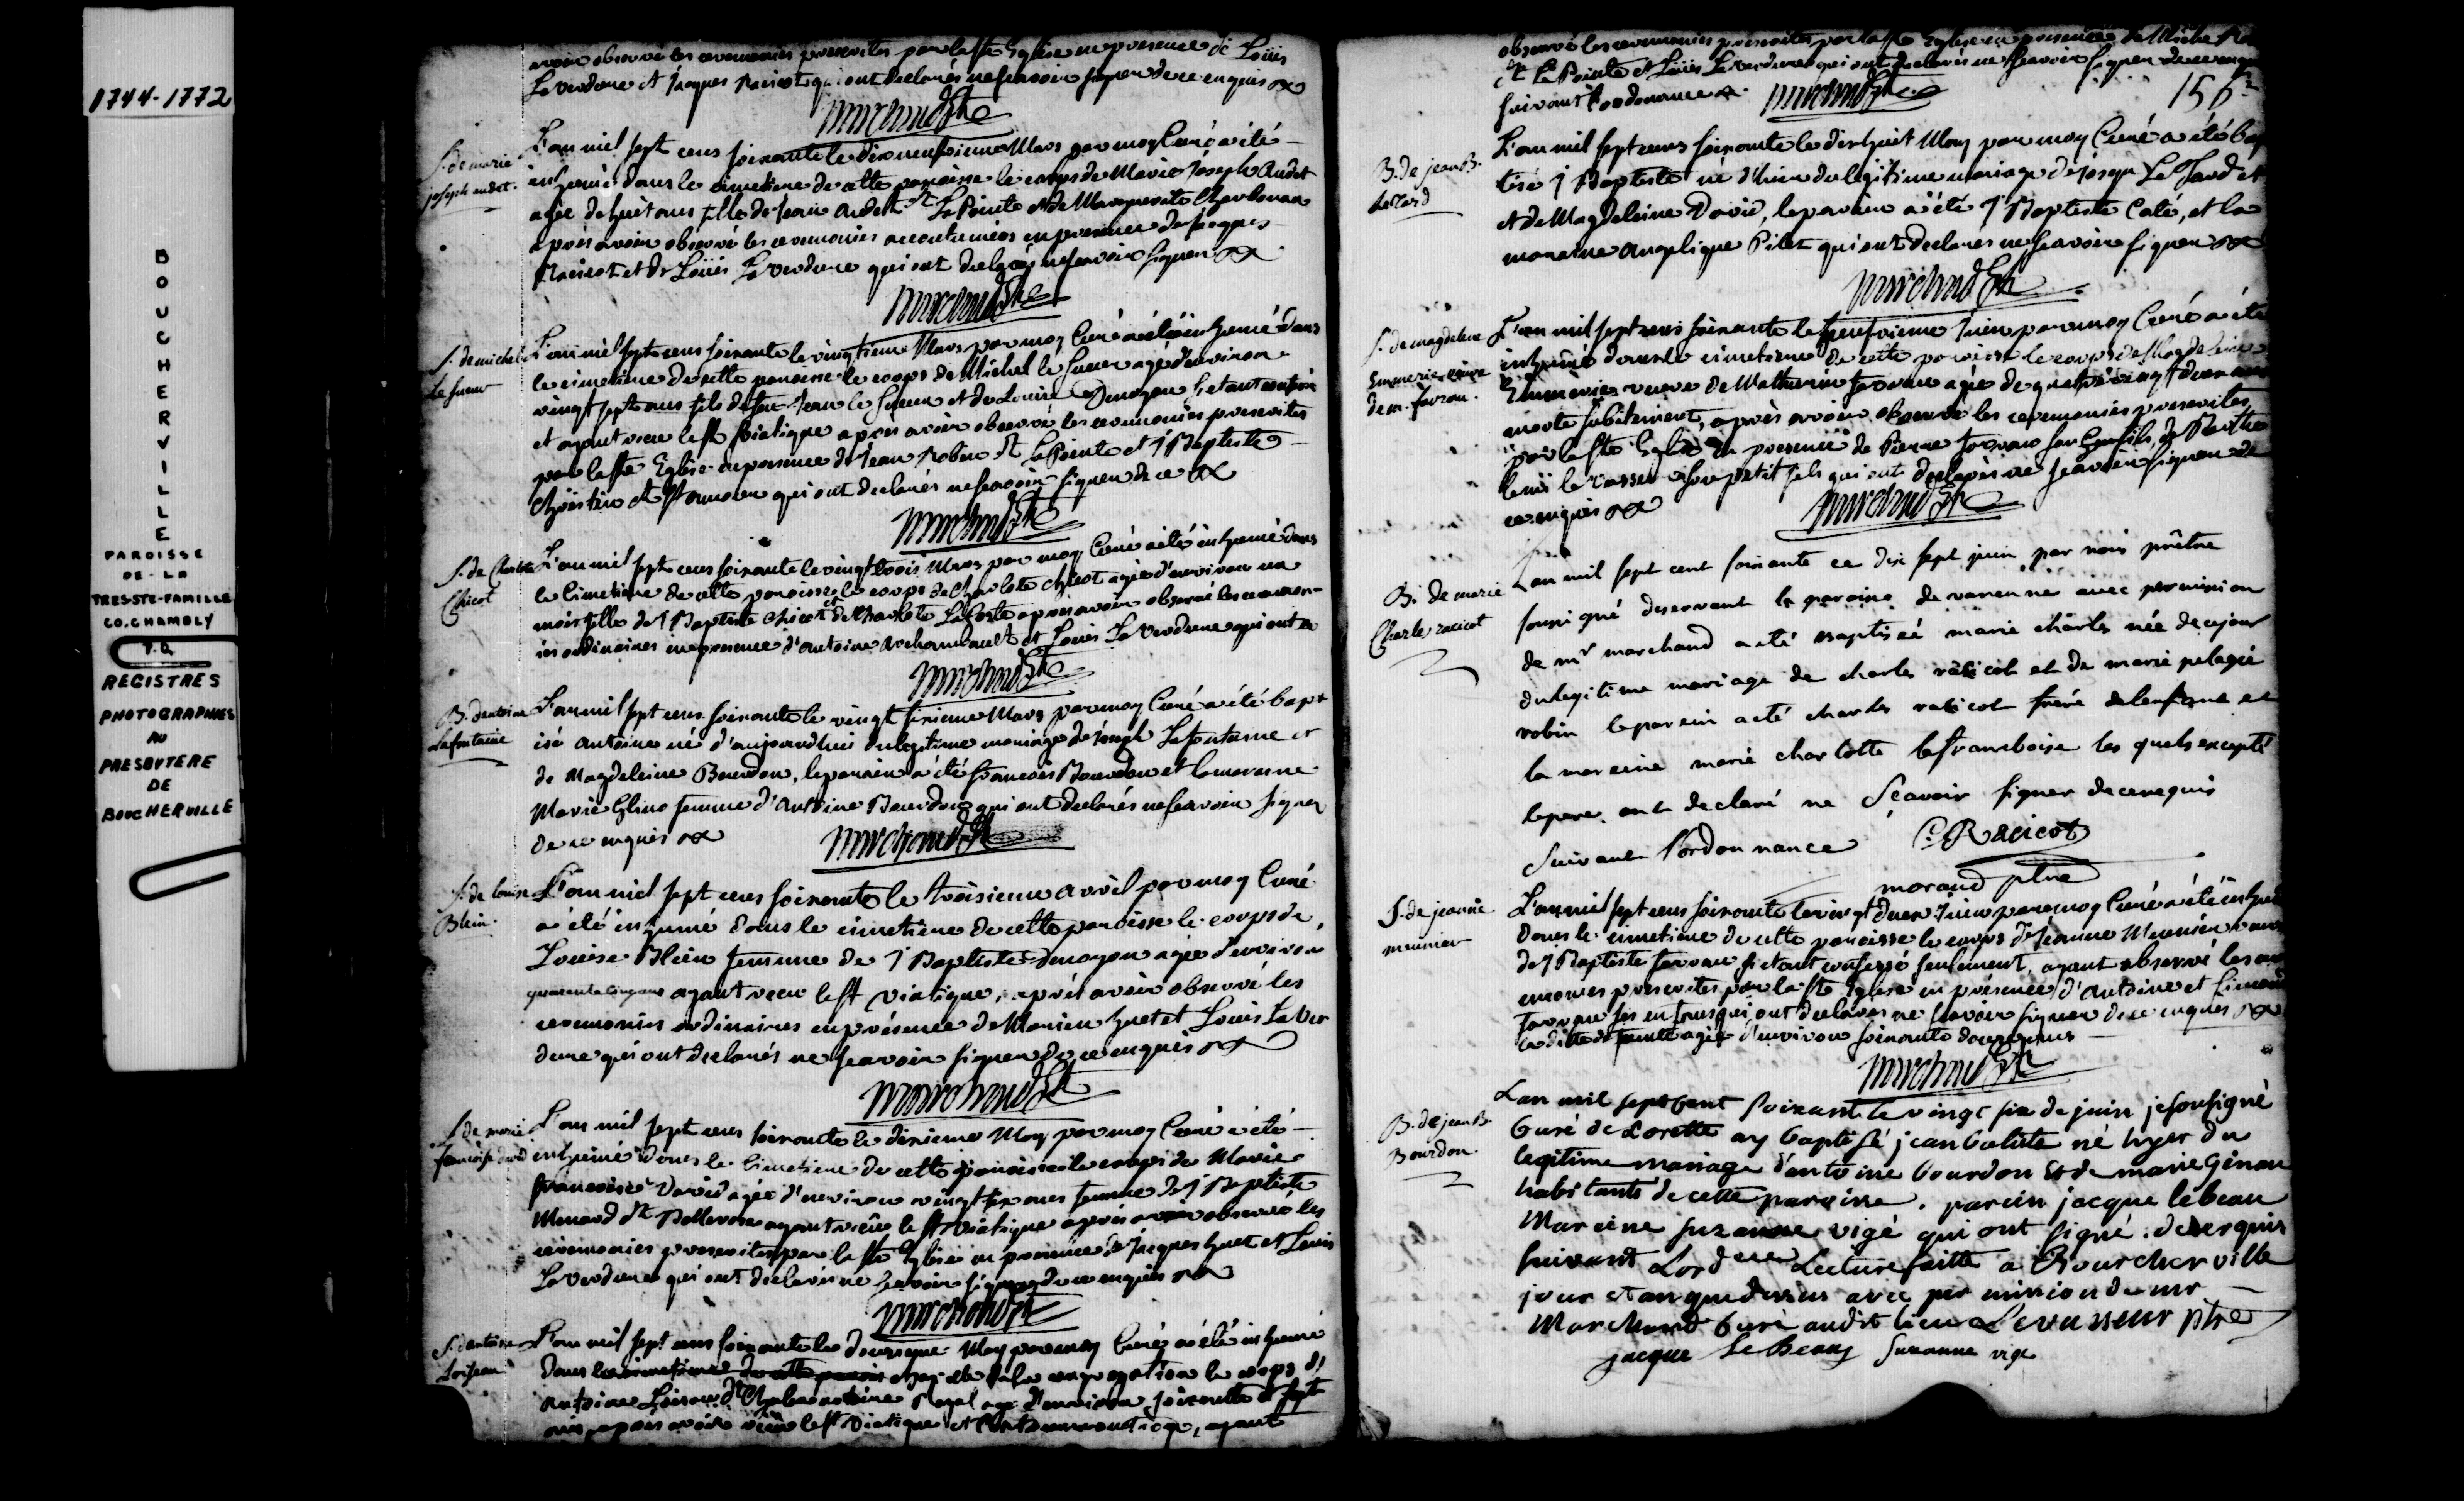 1744-1772
BOUCHERVILLE
PAROISSE
DE-LA
TRES-STE-FAMILLE
CO. CHAMBLY
P.Q.
REGISTRES
PHOTOGRAPHIES
AU
PRESBYTERE
DE
BOUCHERVILLE
avoir observé les ceremonies prescrites par la Ste Eglise en presence de Loüis
La Verdure et Jacques Racicot qui ont declarés ne scavoir signer de ce enquis
Marchand Ptre
S. de marie
joseph audet.
L'an mil sept cens soixante le dixneufvieme Mars par moy Curé a été
inhumé dans le cimetiere de cette paroisse le corps de Marie Joseph Audet
agée de huit ans fille de Jean Audet dt La Pointe et de Marguerite Charbonau
après avoir observé les ceremonies accoutumées en presence de Jacques
Racicot et de Loüis La Verdure qui ont declarés ne scavoir signer
Marchand Ptre
S. de michel
Le sueur
L'an mil sept cens soixante le vingtieme Mars par moy Curé a été inhumé dans
le cimetiere de cette paroisse le corps de Michel le Sueur agé d'environ
vingt sept ans fils de feu Jean le Sueur et de Louise s'etant confessé
et ayant recu le St Viatique après avoir observé les ceremonies prescrites
par la Ste Eglise en presence de Jean Robin dt La Pointe et J Baptiste
qui ont declarés ne scavoir signer de ce
Marchand Ptre
S. de Charlote
Chicot
L'an mil sept cens soixante le vingt trois Mars par moy Curé a été inhumé dans
le Cimetiere de cette paroisse le corps de Charlote Chicot agée d'environ un
mois fille de J Baptiste Chicot et de Charlote La Coste après avoir observé les ceremon-
ies ordinaires en presence d'Antoine Archambault et Louis La Verdure qui ont
Marchand Ptre
B. dantoine
Lafontaine
L'an mil sept cens soixante le vingt sixieme Mars par moy Curé a été bapt
isé Antoine né d'aujourdhui du legitime mariage de Joseph Lafontaine et
de Magdeleine Bourdon, le parain a été francois Bourdon et la maraine
Marie femme d'Antoine Bourdon qui ont declarés ne scavoir signer
de ce enquis
Marchand Ptre
S. de louise
Blein.
L'an mil sept cens soixante le troisieme Avril par moy Curé
a été inhumé dans le cimetiere de cette paroisse le corps de
Louise Blein femme de J Baptiste agée d'environ
quarente cinq ans ayant recu le St Viatique, après avoir observé les
ceremonies ordinaires en présence de huet et Louis La Ver
dure qui ont declarés ne scavoir signer de ce enquis
Marchand Ptre
S. de marie
francoise david
L'an mil sept cens soixante le dixieme May par moy Curé a été
inhumé dans le Cimetiere de cette paroisse le corps de Marie
francoise David agée d'environ vingt six ans femme de J Baptiste
Menard dt Bellerose ayant recüe le St Viatique après avoir observé les
céremonies prescrites par la Ste Eglise en presence de Jacques huet et Louis
La Verdure qui ont declarés ne scavoir signer de ce enquis
Marchand Ptre
S. dantoine
Loiseau
L'an mil sept cens soixante le May par moy Curé a été inhumé
dans le cimetiere de cette paroisse de la congregation le corps d'
Antoine Loiseau dt notaire Royal agé d'environ soixante et sept
ans, apres avoir recu le St Viatique et ayant
observé les ceremonies prescrites par la Ste Eglise en presence de Michel
dt La Pointe et Loüis La Verdure qui ont declarés ne scavoir signer de ce enquis
suivant l'ordonnance
Marchand Ptre
156
B. de jean B.
L'an mil sept cens soixante le dixhuit May par moy Curé a été bap
tisé J Baptiste né d'hier du legitime mariage de Joseph
et de Magdeleine David, le parain a été J Baptiste Caté, et la
maraine Angelique Pilet qui ont declarés ne scavoir signer
Marchand Ptre
S. de magdeleine
Emmerie veuve
de m. favrau.
L'an mil sept cens soixante le Juin par moy Curé a été
inhumé dans le cimetiere de cette paroisse le corps de Magdeleine
Emmerie veuve de Mathurin favrau agée de quatre vingt deux ans
morte subitement, après avoir observé les ceremonies prescrites
par la Ste Eglise en presence de Pierre favrau son fils, de
le Vasseur son petit fils qui ont declarés ne scavoir signer de
ce enquis
Marchand Ptre
B. de marie
Charle racicot
Lan mil sept cent soixante ce dix sept juin par nous prêtre
soussigné desservant la paroisse de varenne avec permission
de mr marchand a été baptisée marie charles née de ce jour
du legitime mariage de charles racicot et de marie pelagie
robin le parein a été charles racicot frere de lenfant et
la mareine marie charlotte lafrancboise les quels excepté
le pere ont declaré ne sçavoir signer de ce requis
suivant lordonnance
C. Racicot
morand ptre
S. de jeanne
meunier
L'an mil sept cens soixante le vingt deux Juin par moy Curé a été inhumé
dans le cimetiere de cette paroisse le corps de Jeanne Meunier
de J Baptiste favrau s'etant confessé seulement, ayant observé les
ceremonies prescrites par la Ste Eglise en présence d'Antoine et Simon
favrau ses enfans qui ont declarés ne scavoir signer de ce enquis
la ditte defunte agée d'environ soixante douze ans
Marchand Ptre
B. de jean B.
Bourdon.
Lan mil sept Cent soixant le vingt six de juin je sousigné
Curé de Lorette ay baptisé jean batiste né hyer du
legitime mariage d'antoine bourdon et de marie
habitants de cette paroisse. parein jacque lebeau
Mareine suzanne vigé qui ont signé. de ce requis
suivant Lordce Lecture faitte a Bourcherville
jour et an que dessus avec permission de mr
Marchand Curé audit lieu Levasseur ptre
jacque Le Beau Suzanne vige